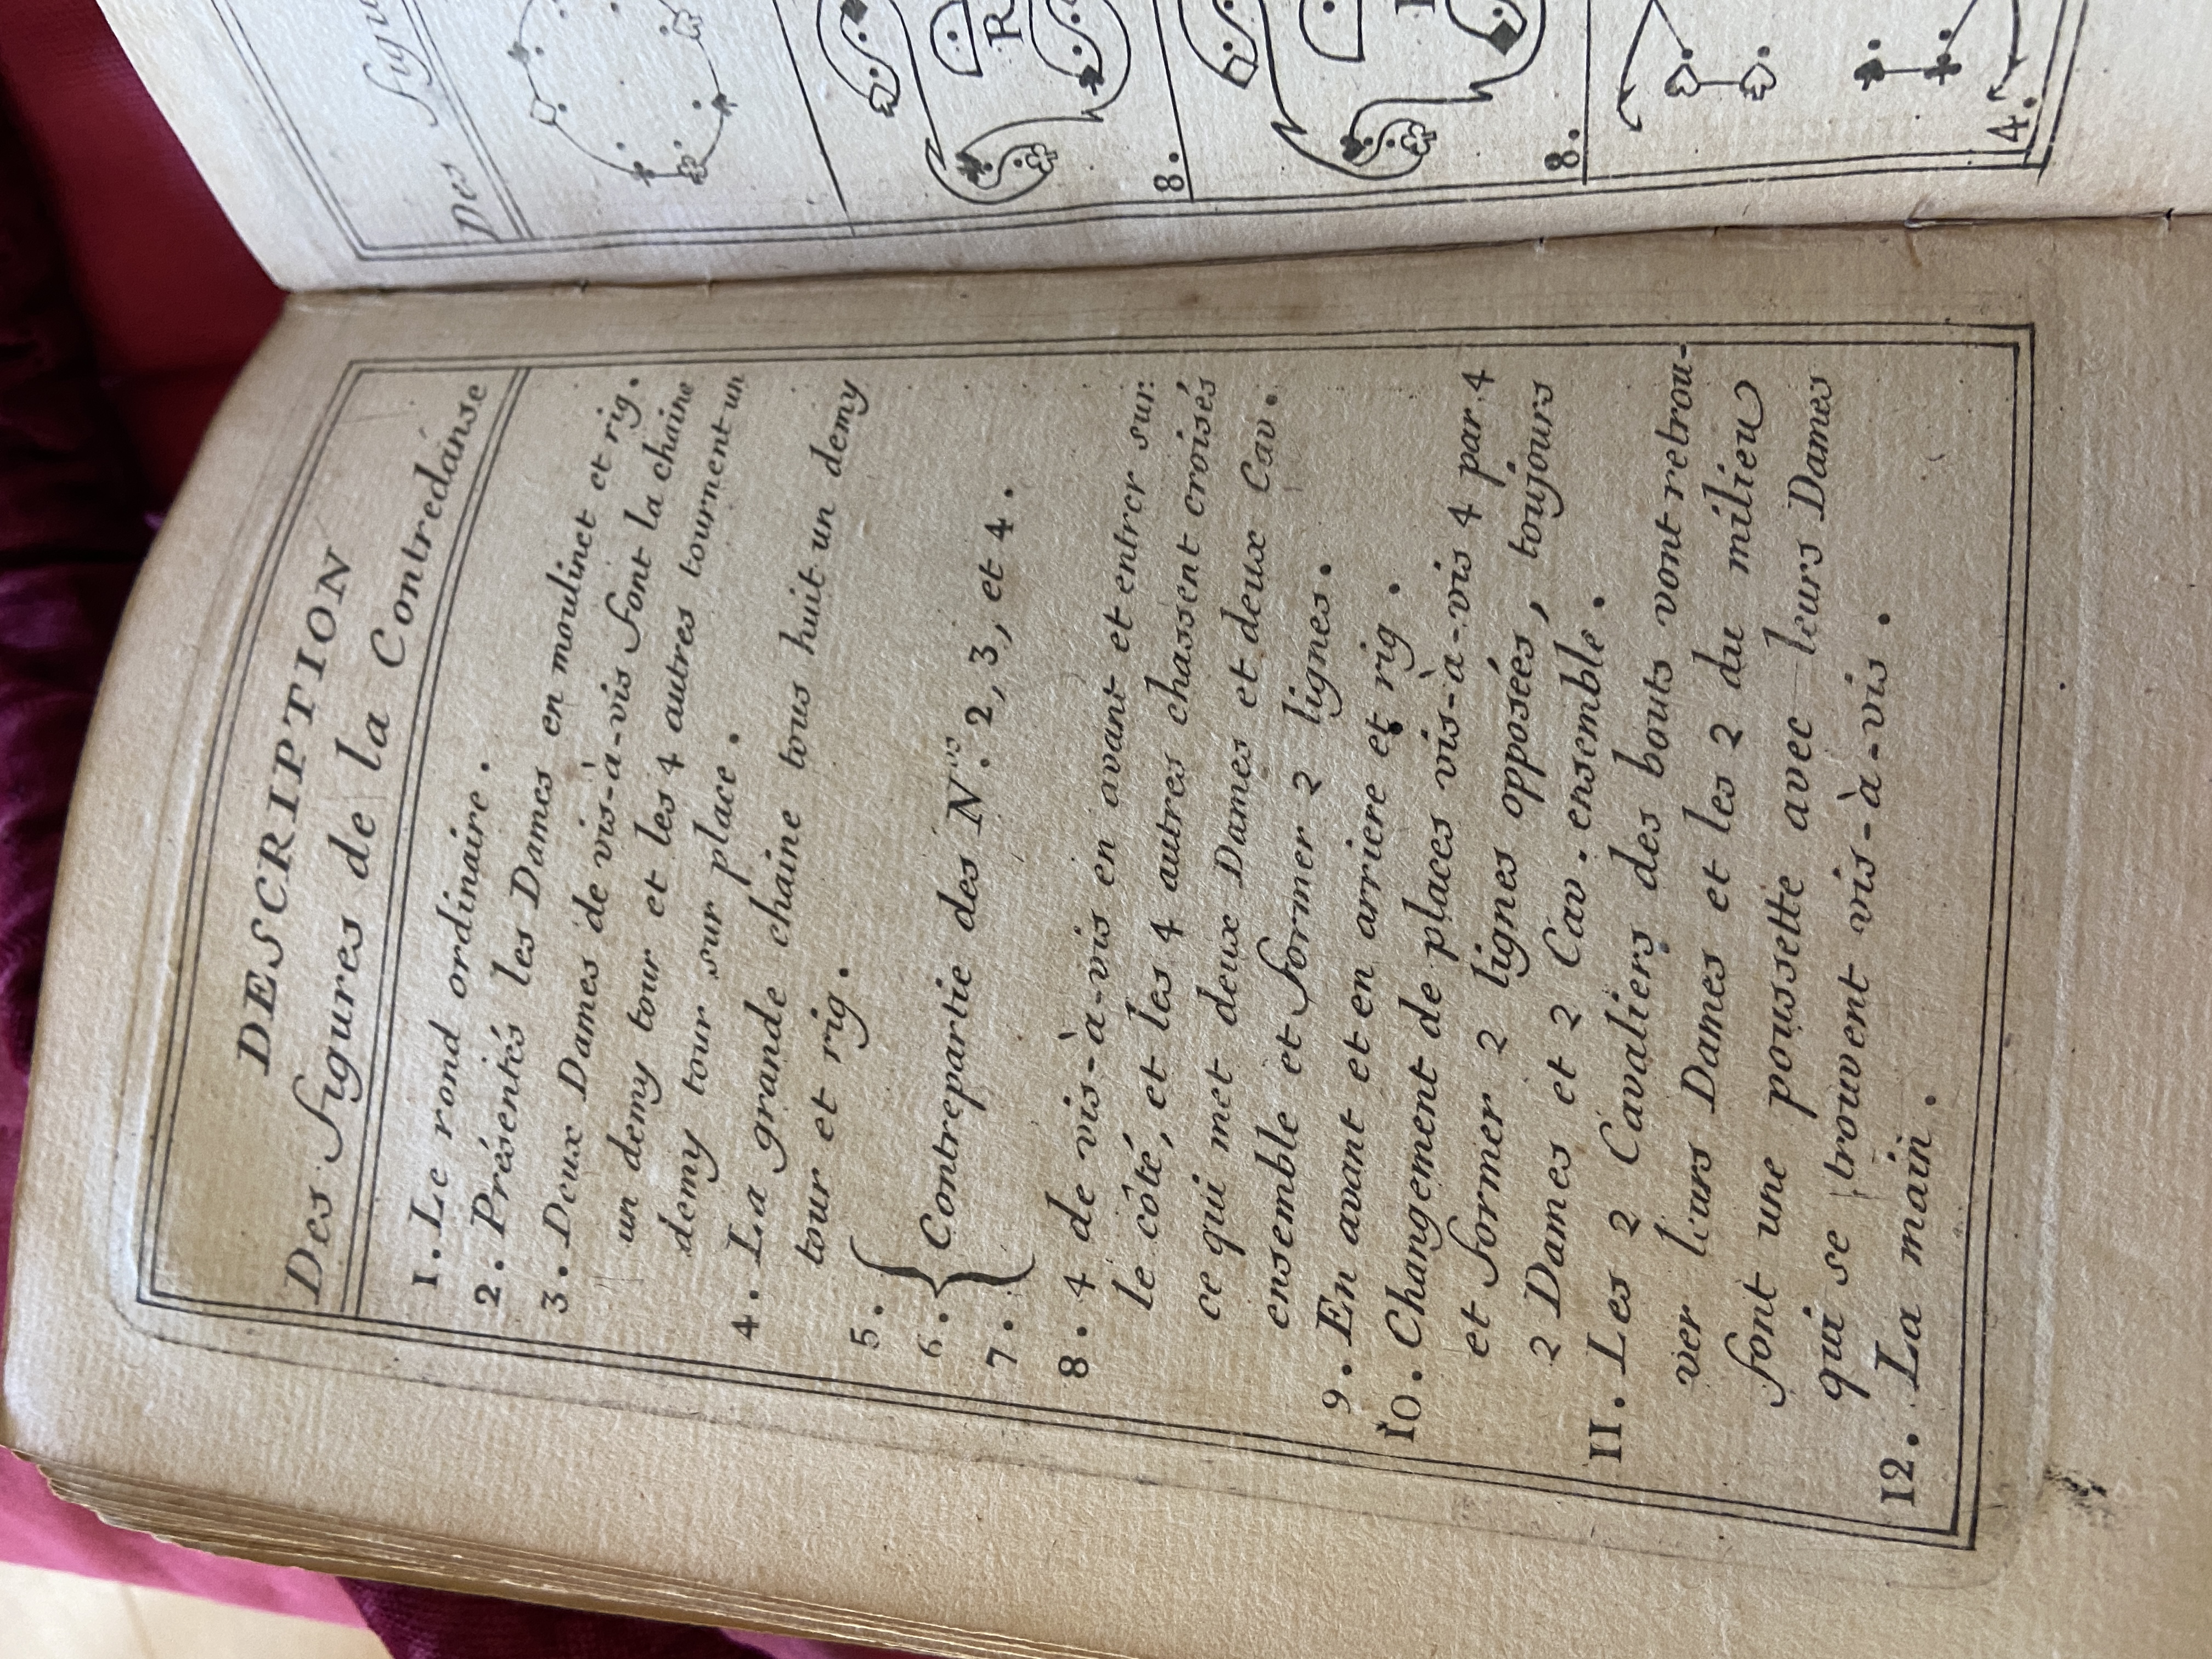 DESCRIPTION
Des figures de la Contredanse
1. Le rond ordinaire.
2. Présentés les Dames en moulinet et rig.
3. Deux Dames de vis-à-vis font la chaine
un demy tour et les 4 autres tournent un
demy tour sur place.
4. La grande chaine tous huit un demy
tour et rig.
5.
6. Contrepartie des N.os 2, 3, et 4.
7.
8. 4 de vis-à-vis en avant et entrer sur
le côté, et les 4 autres chassent croisés
ce qui met deux Dames et deux Cav.
ensemble et former 2 lignes.
9. En avant et en arriere et rig.
10. Changement de places vis-à-vis 4 par 4
et former 2 lignes opposées, toujours
2 Dames et 2 Cav. ensemble.
11. Les 2 Cavaliers des bouts vont retrou-
ver leurs Dames et les 2 du milieu
font une poussette avec leurs Dames
qui se trouvent vis-à-vis.
12. La main.
Des figu
R
8.
8.
4.